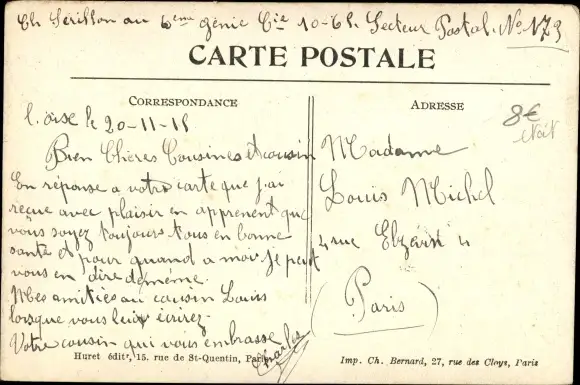 Ch Sérillon au 6ème génie Cie 10-6h. Secteur Postal. No 173
CARTE POSTALE
CORRESPONDANCE
l'oise le 20-11-15
Bien Chères Cousines et cousin
En réponse a votre carte que j'ai
reçue avec plaisir en apprenent que
vous soyez toujours tous en bonne
santé et pour quand a moi je peut
vous en dire de même.
Mes amitiés au cousin Louis
lorsque vous lui écrirez.
Votre cousin qui vous embrasse
Charles
ADRESSE
8€
Madame
Louis Michel
4 rue 4
(Paris)
Huret éditr, 15. rue de St-Quentin, Paris
Imp. Ch. Bernard, 27, rue des Cloys, Paris